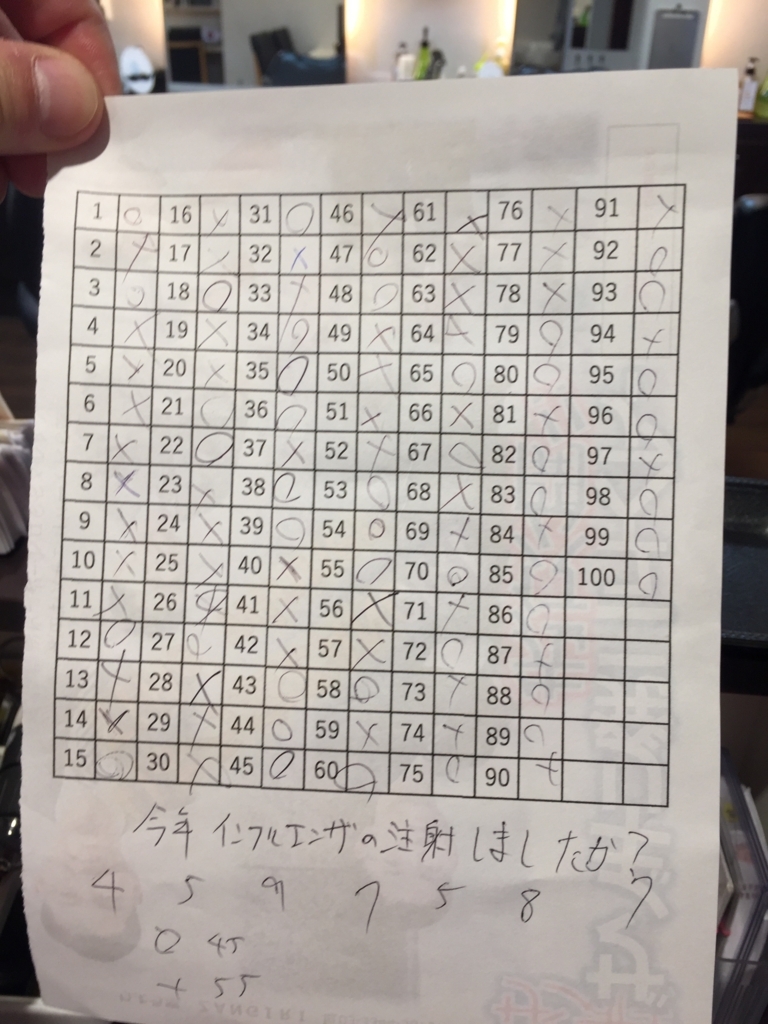 1 ○ 16 × 31 ○ 46 × 61 × 76 × 91 ×
2 × 17 × 32 × 47 ○ 62 × 77 × 92 ○
3 ○ 18 ○ 33 × 48 ○ 63 × 78 × 93 ○
4 × 19 × 34 ○ 49 × 64 × 79 ○ 94 ×
5 × 20 × 35 ○ 50 × 65 ○ 80 ○ 95 ○
6 × 21 ○ 36 ○ 51 × 66 × 81 × 96 ○
7 × 22 ○ 37 × 52 × 67 ○ 82 ○ 97 ×
8 × 23 × 38 ○ 53 ○ 68 × 83 ○ 98 ○
9 × 24 × 39 ○ 54 ○ 69 × 84 × 99 ○
10 × 25 × 40 × 55 ○ 70 ○ 85 ○ 100 ○
11 × 26 41 × 56 × 71 × 86 ○
12 ○ 27 ○ 42 × 57 × 72 ○ 87 ×
13 × 28 × 43 ○ 58 ○ 73 × 88 ○
14 × 29 × 44 ○ 59 × 74 × 89 ○
15 ○ 30 × 45 ○ 60 ○ 75 ○ 90 ×
今年 インフルエンザの注射しましたか?
4 5 9 7 5 8 7
○ 45
× 55